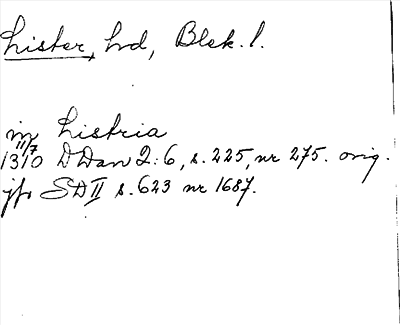 Lister, hd, Blek. l.
in Listria
11/7
1310 DDan 2:6, s. 225, nr 275. orig.
jfr SD II s. 623 nr 1687.